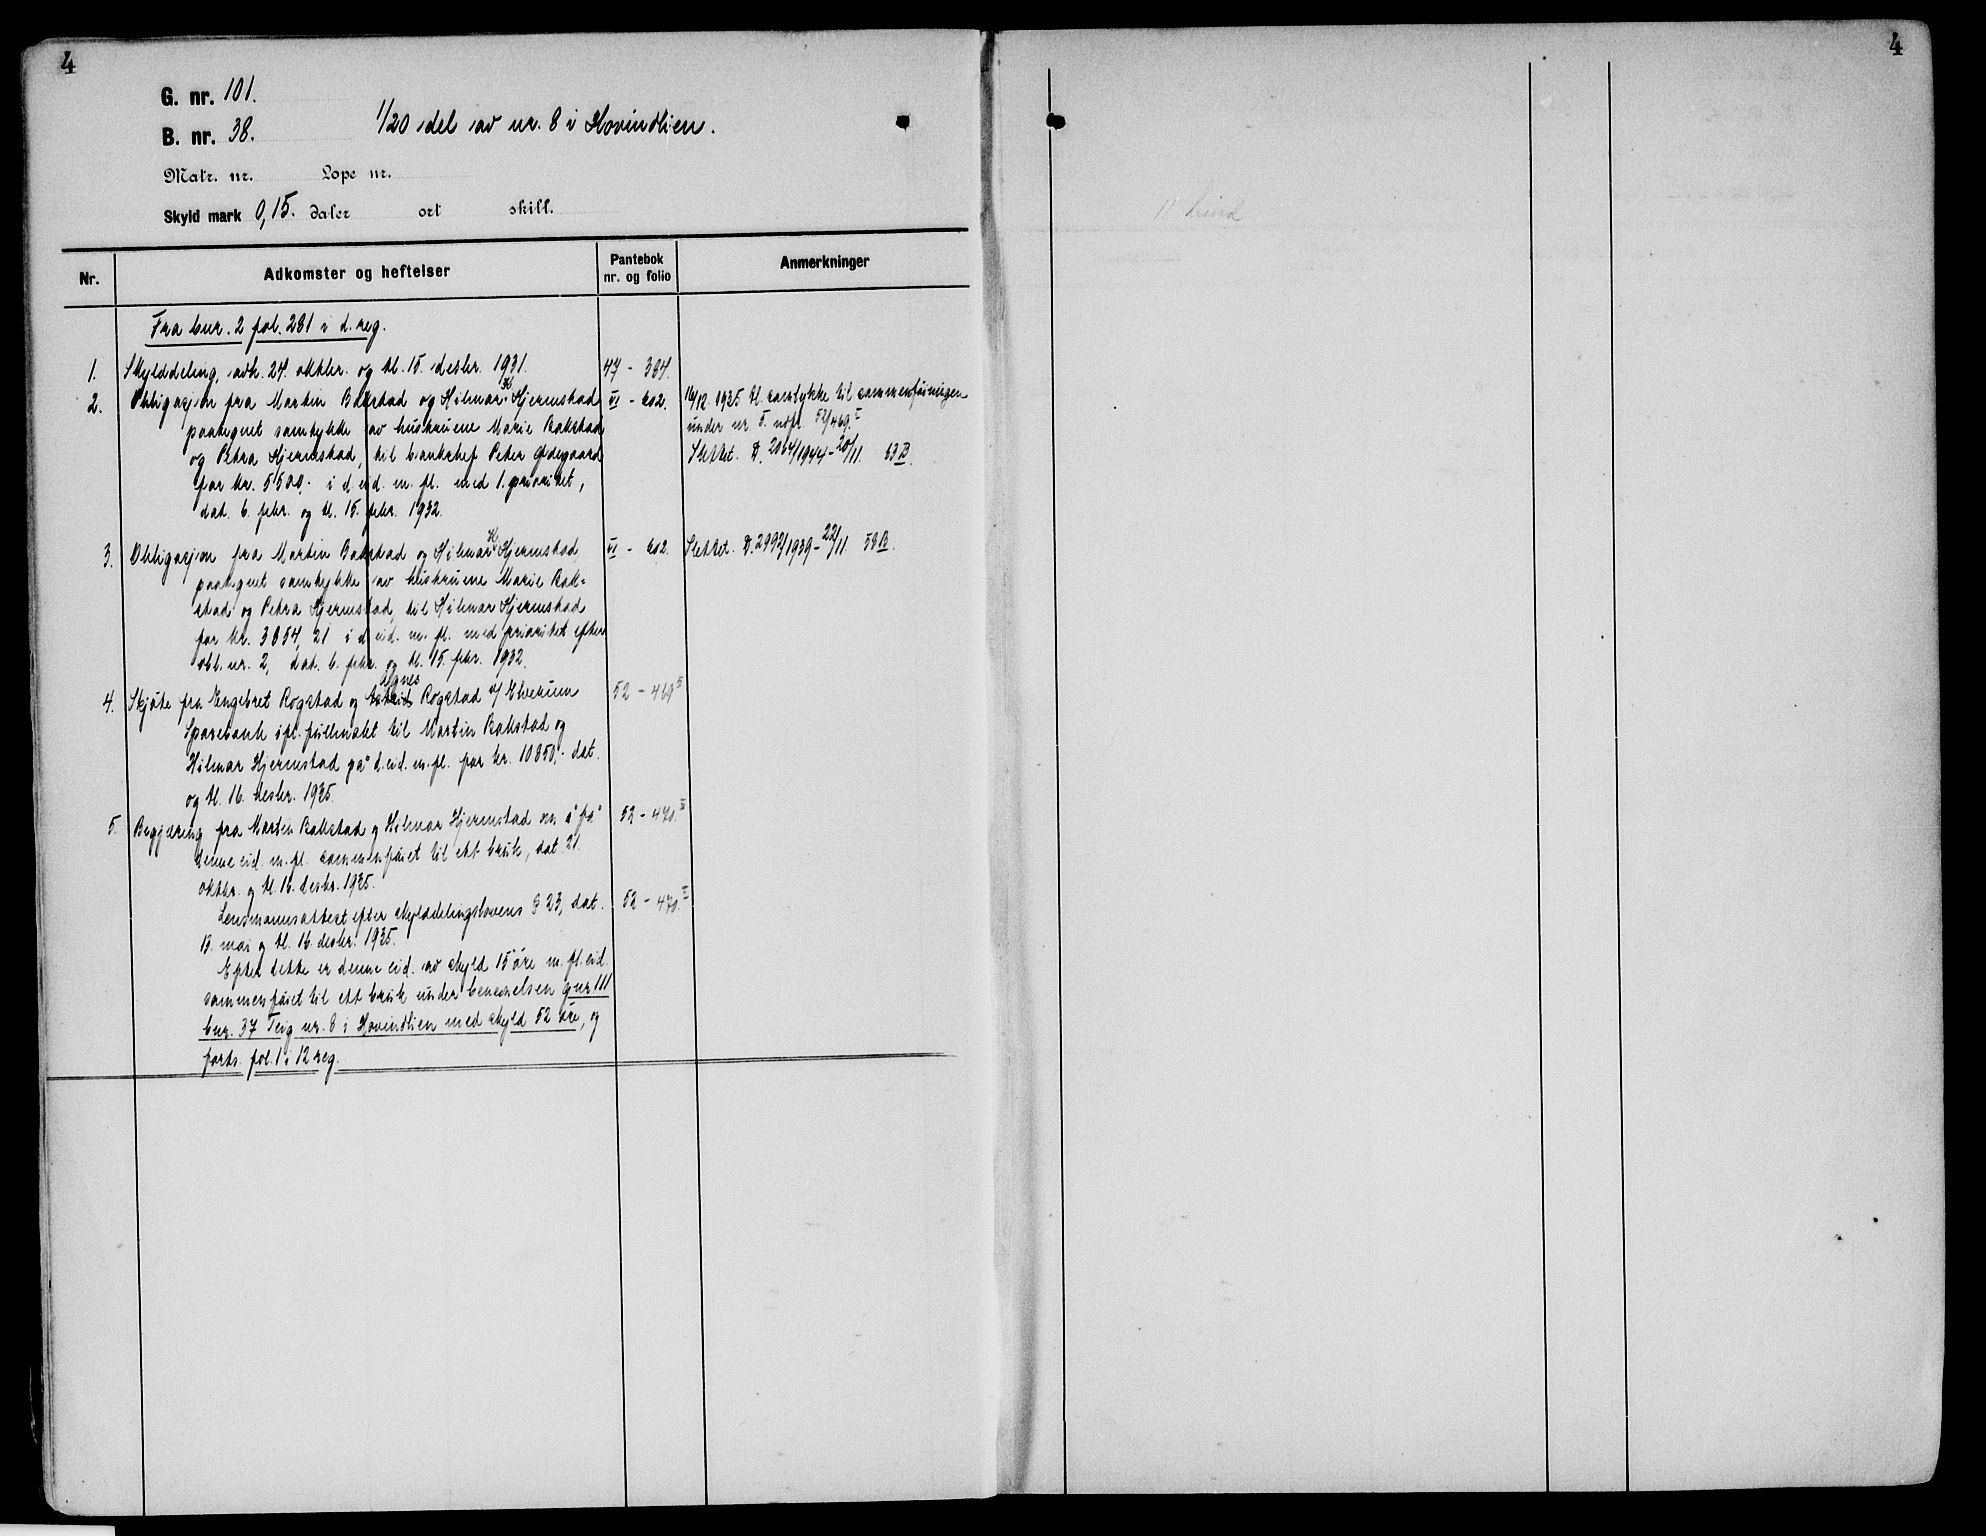 4
4
G. nr. 101.
B. nr. 38.
1/20 del av nr. 8 i Hovindlien.
Matr. nr. Løpe nr.
Skyld mark 0,15. daler ort skill.
Nr. Adkomster og heftelser Pantebok nr. og folio Anmerkninger
Fra bnr. 2 fol. 281 i d. reg.
1. Skylddeling, avh. 24. oktbr. og tl. 15. desbr. 1931. 47 - 384.
2. Obligasjon fra Martin Bakstad og Hilmar K. Hjermstad VI - 602. 16/12. 1935 tl. samtykke til sammenføiningen
paategnet samtykke av hustruene Marie Bakstad under nr. 5. 52/469.
og Petra Hjermstad, til banksjef Peter Ødegaard Slettet. D. 2064/1944 - 20/11. 63 B.
for kr. 5500,- i d. eid. m. fl. med 1. prioritet,
dat. 6. febr. og tl. 15. febr. 1932.
3. Obligasjon fra Martin Bakstad og Hilmar K. Hjermstad VI - 602. Slettet. D. 2992/1939 - 22/11. 58 B.
paategnet samtykke av hustruene Marie Bak-
stad og Petra Hjermstad, til Hilmar Hjermstad
for kr. 3854,21 i d. eid. m. fl. med prioritet efter
obl. nr. 2, dat. 6. febr. og tl. 15. febr. 1932.
4. Skjøte fra Engebret Rogstad og Agnes Rogstad v/ Elverum 52 - 469
Sparebank ifl. fullmakt til Martin Bakstad og
Hilmar Hjermstad på d. eid. m. fl. for kr. 10850,- dat.
og tl. 16. desbr. 1935.
5. Begjæring fra Martin Bakstad og Hilmar Hjermstad om å få 52 - 470.
denne eid. m. fl. sammenføiet til ett bruk, dat. 21.
oktbr. og tl. 16. desbr. 1935.
Lensmannsattest efter skylddelingslovens § 23, dat. 52 - 470.
13. mai og tl. 16. desbr. 1935.
Efter dette er denne eid. av skyld 15 øre m. fl. eid.
sammenføiet til ett bruk under benevnelsen gnr 111
bnr. 37 Teig nr. 8 i Hovindlien med skyld 52 øre, og
forts. fol. 1 i 12 reg.